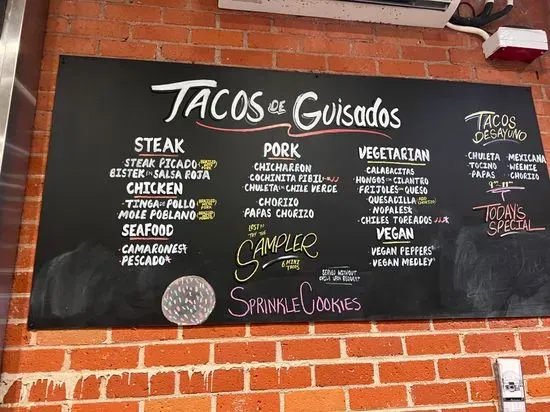 TACOS DE GUISADOS
STEAK
STEAK PICADO
BISTEK EN SALSA ROJA
CHICKEN
TINGA DE POLLO
MOLE POBLANO
SEAFOOD
CAMARONES
PESCADO
PORK
CHICHARRON
COCHINITA PIBIL
CHULETA EN CHILE VERDE
CHORIZO
PAPAS CHORIZO
LOST?
TRY THE
SAMPLER
6 MINI
TACOS
SERVED WITHOUT
UPON REQUEST
SPRINKLE COOKIES
VEGETARIAN
CALABACITAS
HONGOS EN CILANTRO
FRIJOLES EN QUESO
QUESADILLA
NOPALES
CHILES TOREADOS
VEGAN
VEGAN PEPPERS
VEGAN MEDLEY
TACOS
DESAYUNO
CHULETA MEXICANA
TOCINO WEENIE
PAPAS CHORIZO
TODAY'S
SPECIAL